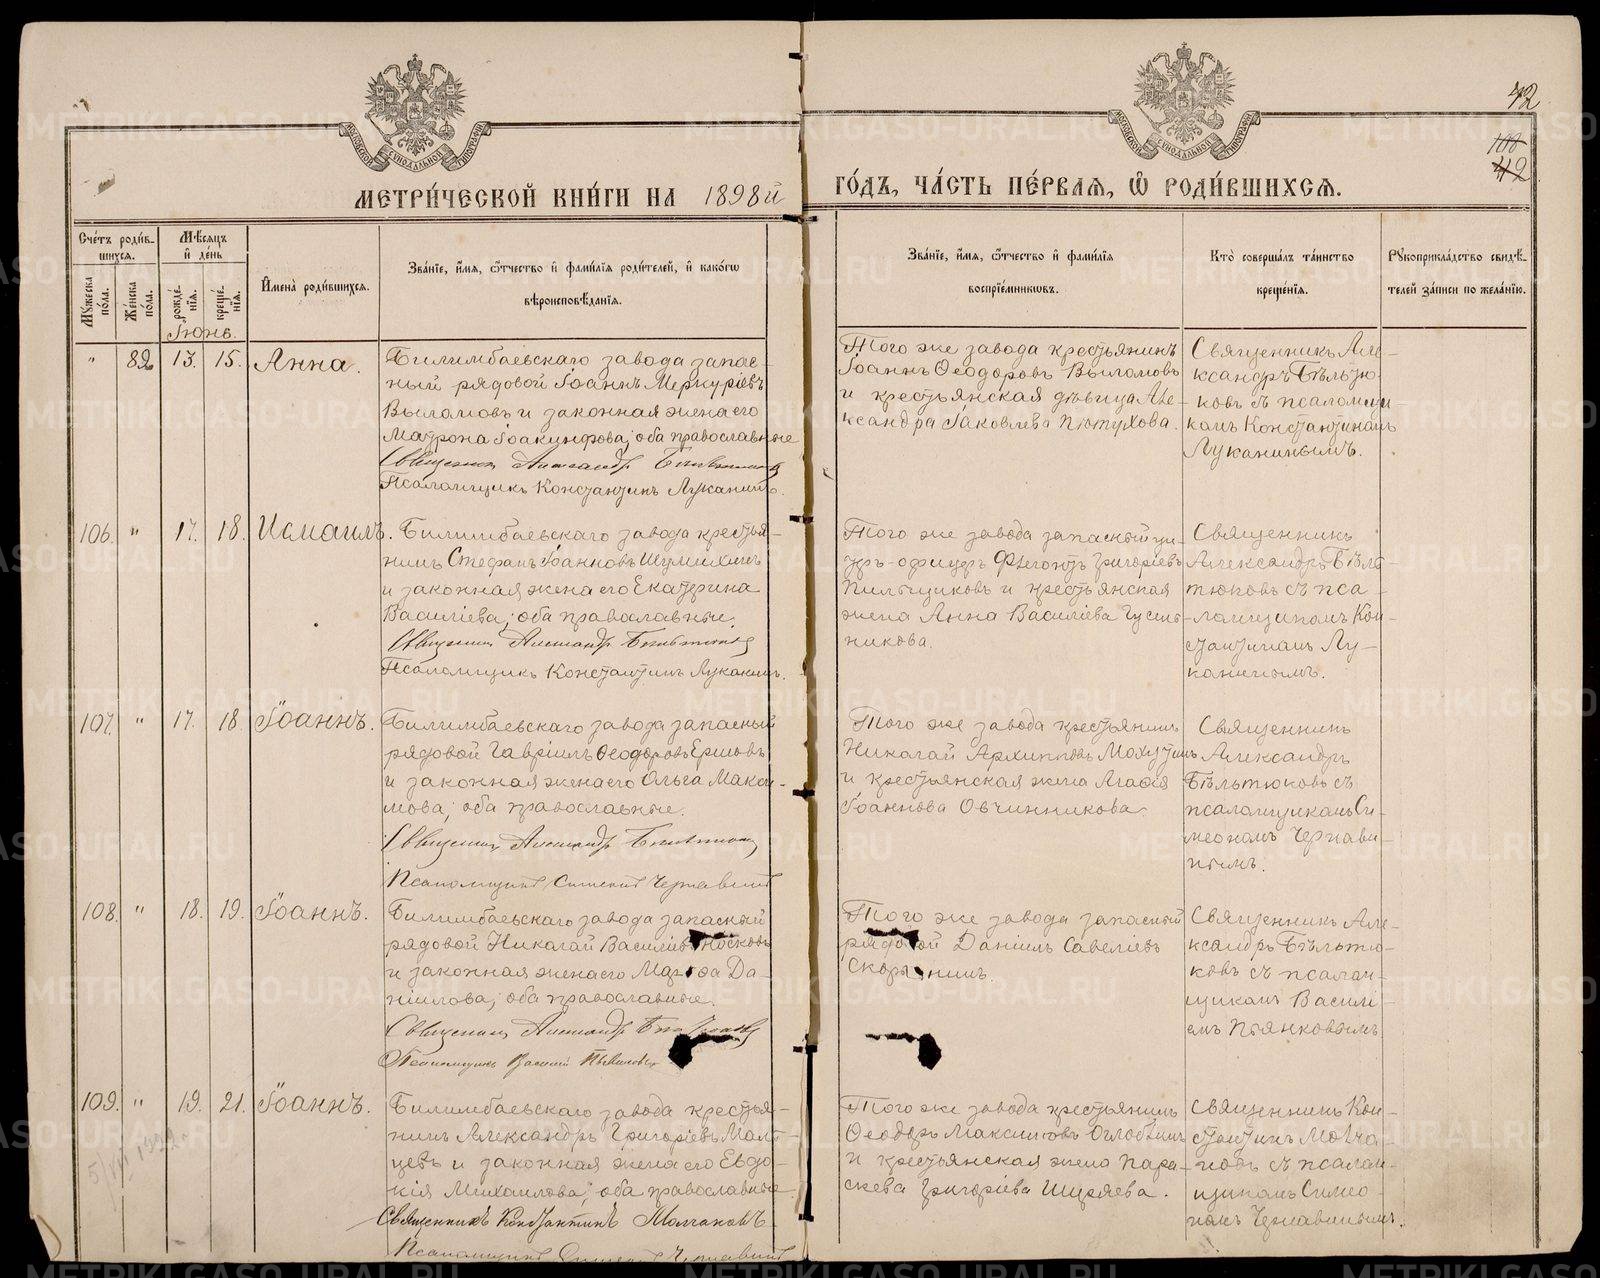 42
108
42
МЕТРИЧЕСКОЙ КНИГИ НА 1898й
ГОДЪ, ЧАСТЬ ПЕРВАЯ, Ѿ РОДИВШИХСЯ.
Счетъ родившихся.
Мужеска пола.
Женска пола.
Мѣсяцъ и день
рожденія.
крещенія.
Имена родившихся.
Званіе, имя, отчество и фамилія родителей, и какогѡ
вѣроисповѣданія.
Званіе, имя, отчество и фамилія
воспріемниковъ.
Кто совершалъ таинство
крещенія.
Рукоприкладство свидѣ-
телей записи по желанію.
Іюнь.
" 82 13. 15. Анна.
Билимбаевскаго завода запас-
ный рядовой Іоаннъ Меркуріевъ
Выломовъ и законная жена его
Матрона Іоакинфова; оба православные
Священникъ Александръ Бѣльтюковъ
Псаломщикъ Константинъ Луканинъ.
Того же завода крестьянинъ
Іоаннъ Ѳеодоровъ Выломовъ
и крестьянская дѣвица Але-
ксандра Іаковлева Пѣтухова.
Священникъ Але-
ксандръ Бѣльтю-
ковъ съ псаломщи-
комъ Константиномъ
Луканинымъ.
106. " 17. 18. Исмаилъ.
Билимбаевскаго завода крестья-
нинъ Стефанъ Іоанновъ Шумихинъ
и законная жена его Екатерина
Василіева; оба православные.
Священникъ Александръ Бѣльтюковъ
Псаломщикъ Константинъ Луканинъ.
Того же завода запасный ун-
теръ-офицеръ Григоріевъ
Пильщиковъ и крестьянская
жена Анна Василіева Гусель-
никова.
Священникъ
Александръ Бѣль-
тюковъ съ пса-
ломщикомъ Кон-
стантиномъ Лу-
канинымъ.
107. " 17. 18. Іоаннъ.
Билимбаевскаго завода запасный
рядовой Гавріилъ Ѳеодоровъ Ершовъ
и законная жена его Ольга Макси-
мова; оба православные.
Священникъ Александръ Бѣльтюковъ
Псаломщикъ Симеонъ Чернавинъ
Того же завода крестьянинъ
Николай Архиповъ Махутинъ
и крестьянская жена Агафія
Іоаннова Овчинникова.
Священникъ
Александръ
Бѣльтюковъ съ
псаломщикомъ Си-
меономъ Чернави-
нымъ.
108. " 18. 19. Іоаннъ.
Билимбаевскаго завода запасный
рядовой Николай Василіевъ Носковъ
и законная жена его Марѳа Да-
ніилова; оба православные.
Священникъ Александръ Бѣльтюковъ
Псаломщикъ Василій Пьянковъ
Того же завода запасный
рядовой Даніилъ Савеліевъ
Скорынинъ.
Священникъ Але-
ксандръ Бѣльтю-
ковъ съ псалом-
щикомъ Василі-
емъ Пьянковымъ
109. " 19. 21. Іоаннъ.
Билимбаевскаго завода крестья-
нинъ Александръ Григоріевъ Маль-
цевъ и законная жена его Евдо-
кія Михаилова; оба православные
Священникъ Константинъ Молчановъ
Псаломщикъ Симеонъ Чернавинъ
Того же завода крестьянинъ
Ѳеодоръ Максимовъ Оглоблинъ
и крестьянская жена Пара-
скева Григоріева Ширяева.
Священникъ Кон-
стантинъ Молча-
новъ съ псалом-
щикомъ Симео-
номъ Чернавинымъ.
METRIKI.GASO-URAL.RU